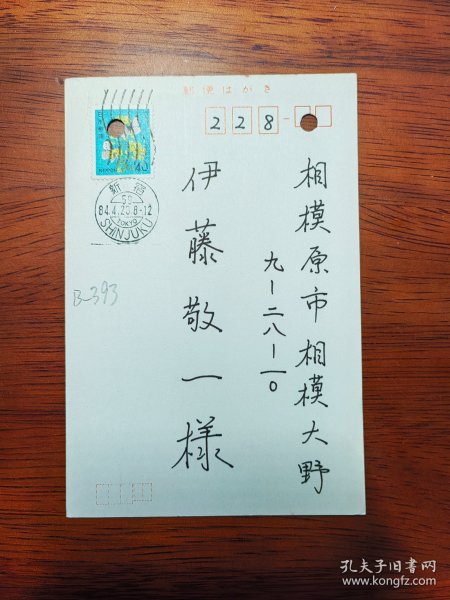 郵便はがき
228
相模原市相模大野
九ー二八ー一〇
伊藤敬一様
新宿
59
84.4.20 8-12
TOKYO
SHINJUKU
B-393
孔夫子旧书网
www.kongfz.com